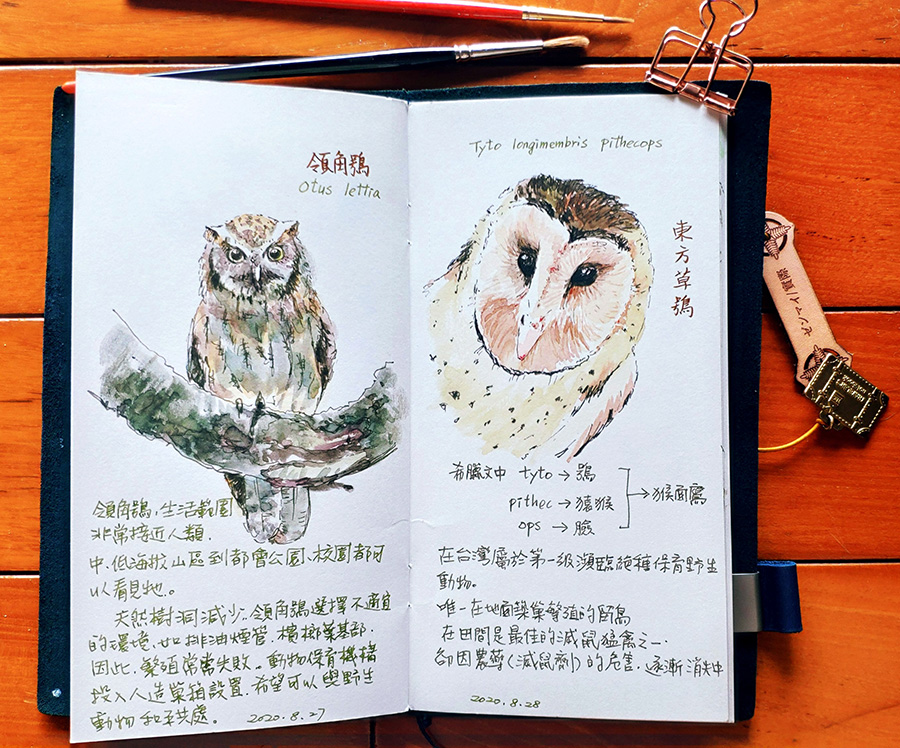 領角鴞
Otus lettia
領角鴞,生活範圍
非常接近人類
中、低海拔山區到都會公園、校園都可
以看見牠。
天然樹洞減少,領角鴞選擇不適宜
的環境,如排油煙管、檳榔葉基部.
因此,繁殖常常失敗。動物保育機構
投入人造巢箱設置,希望可以與野生
動物和平共處。 2020.8.27
Tyto longimembris pithecops
東方草鴞
希臘文中 tyto → 鴞
pithec → 猿猴
ops → 臉
→ 猴面鷹
在台灣屬於第一級瀕臨絕種保育野生
動物。
唯一在地面築巢繁殖的鴞鳥
在田間是最佳的滅鼠猛禽之一.
卻因農藥(滅鼠劑)的危害,逐漸消失中
2020.8.28